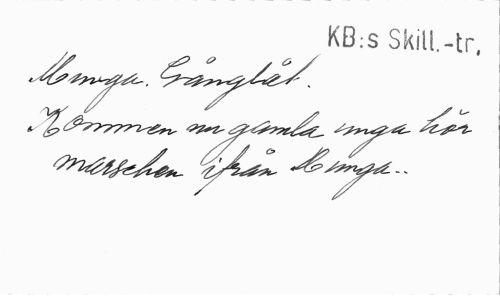 KB:s Skill.-tr.
Munga. Gånglåt.
Kommen nu gamla unga hör
marschen ifrån Munga..